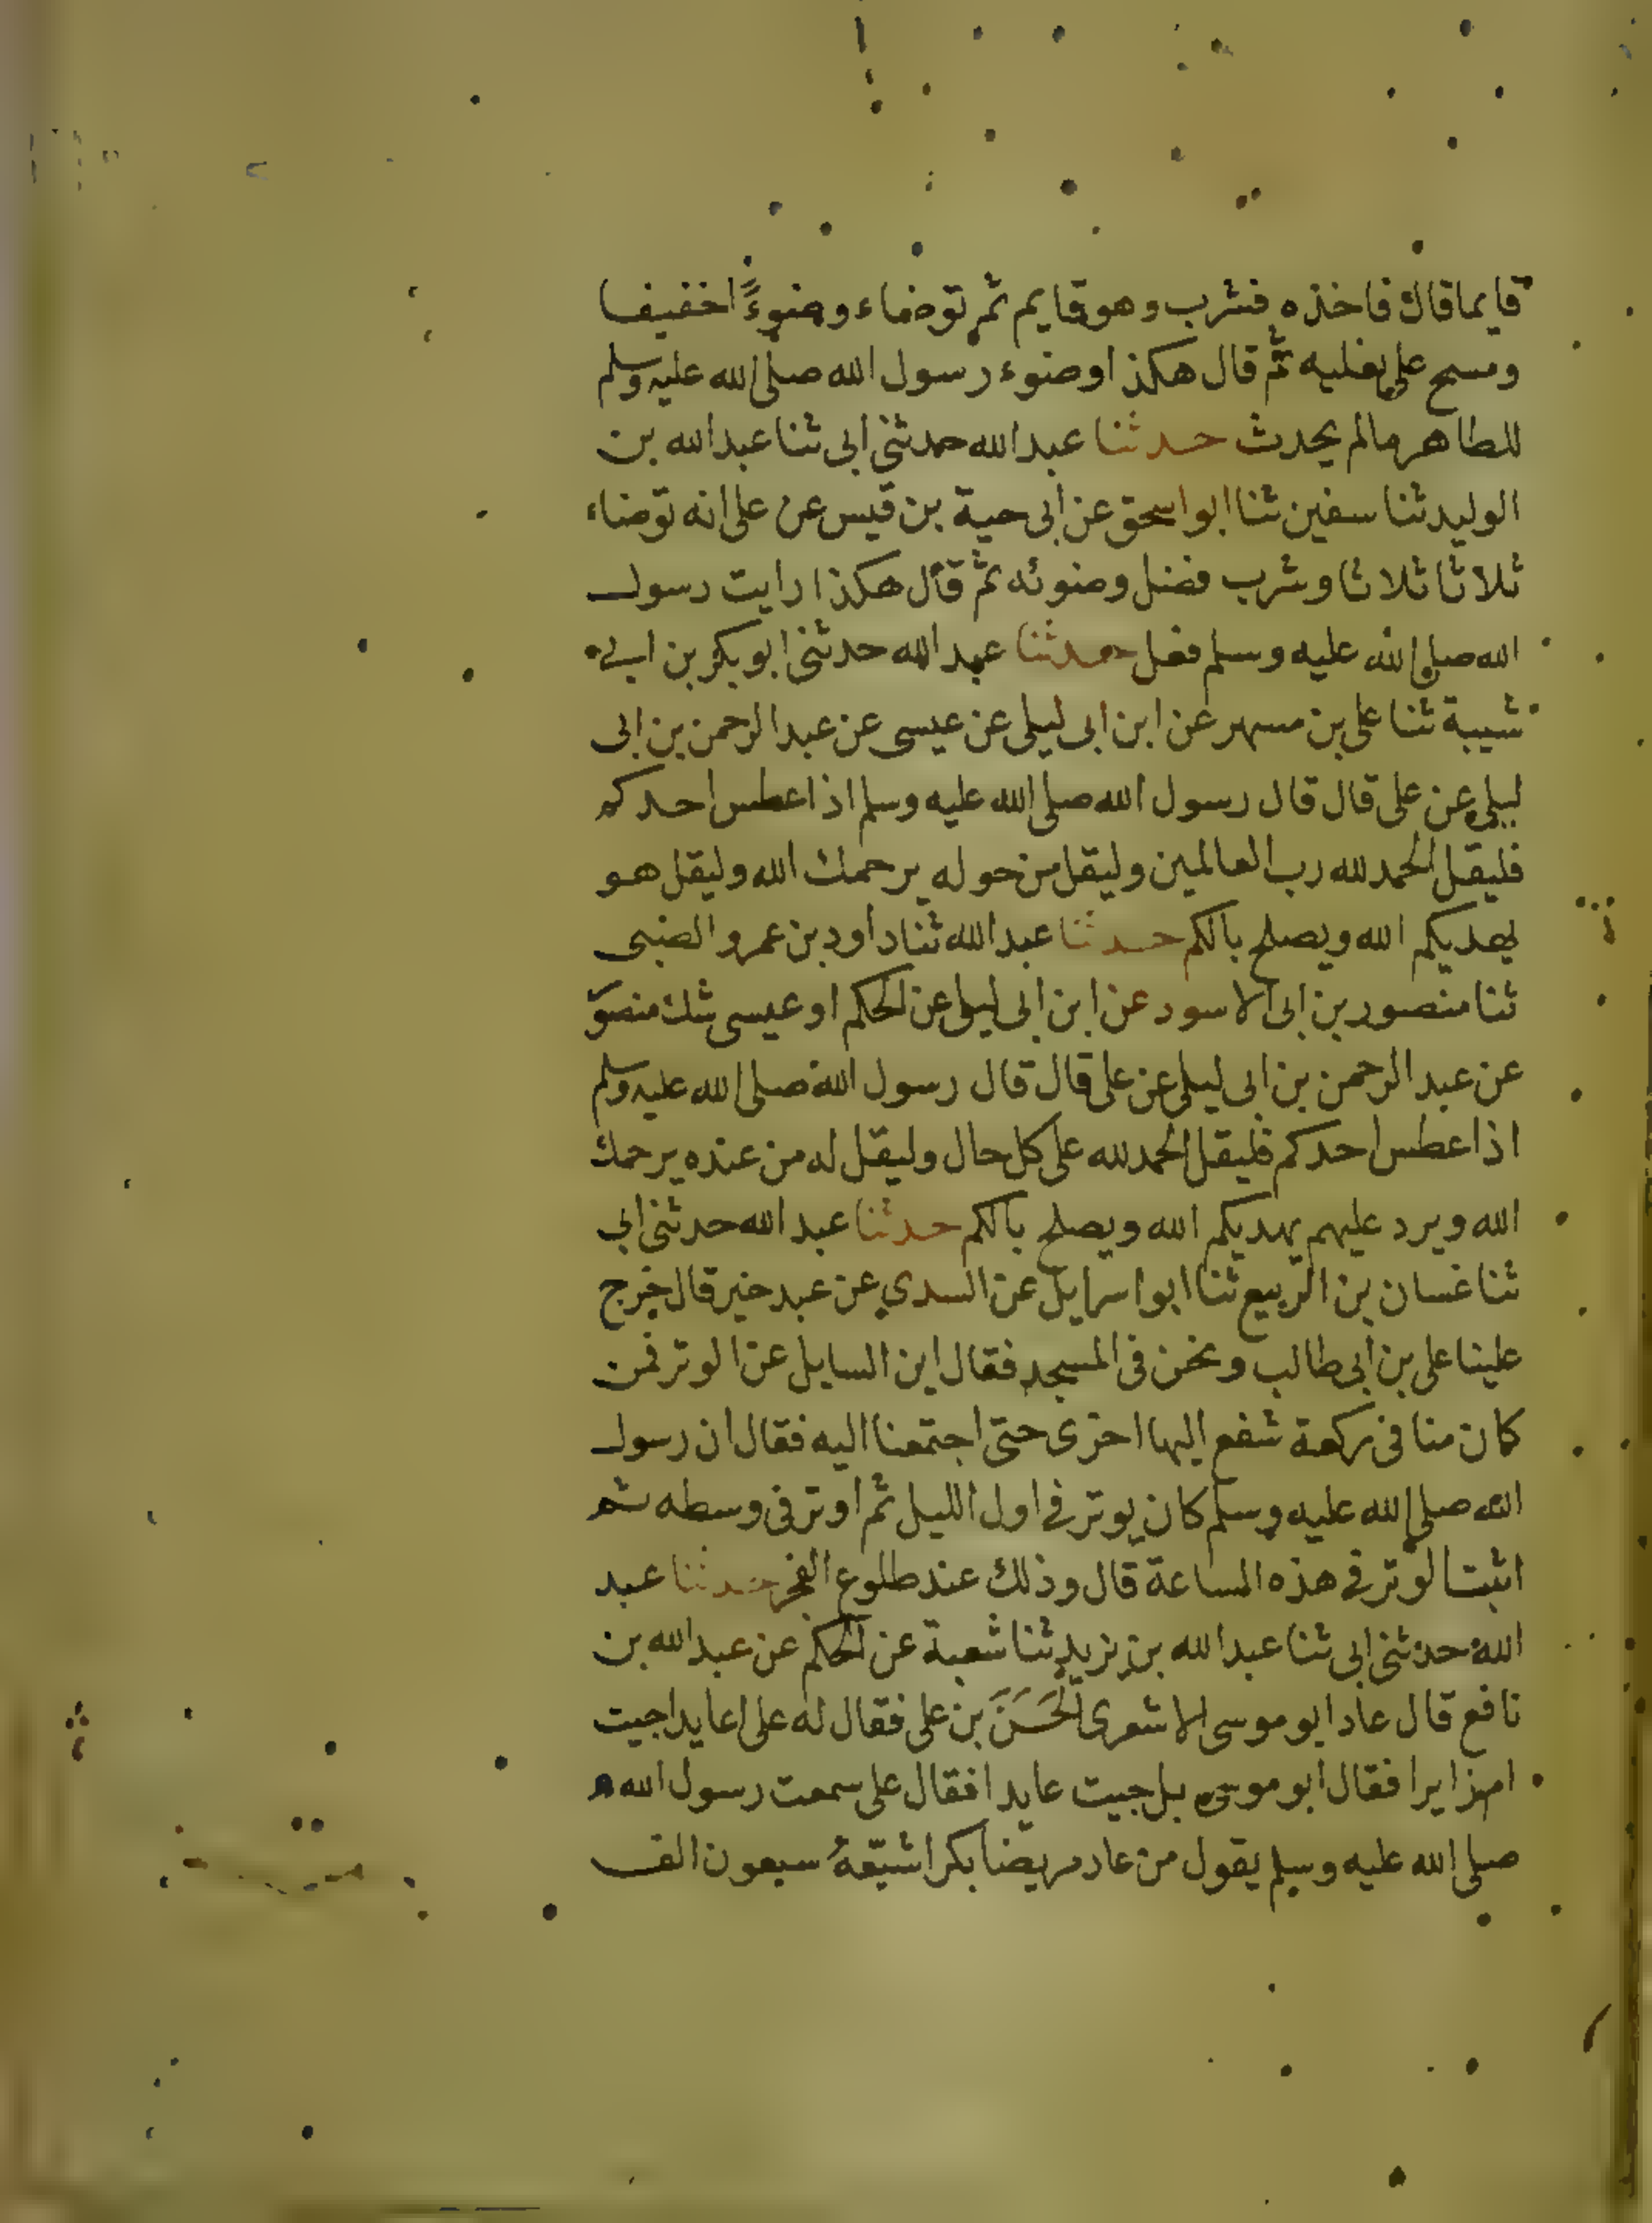 قايما قال فاخذه فشرب وهو قايم ثم توضاء وضوءً اخفيفا
ومسح على نعليه ثم قال هكذا وضوء رسول الله صلى الله عليه وسلم
للطاهر مالم يحدث حدثنا عبد الله حدثنى ابى ثنا عبد الله بن
الوليد ثنا سفين ثنا ابو اسحق عن ابى حية بن قيس عن على انه توضاء
ثلاثا ثلاثا وشرب فضل وضوئه ثم قال هكذا رايت رسول
الله صلى الله عليه وسلم فعل حدثنا عبد الله حدثنى ابو بكر بن ابى
شيبة ثنا على بن مسهر عن ابن ابى ليلى عن عيسى عن عبد الرحمن بن ابى
ليلى عن على قال قال رسول الله صلى الله عليه وسلم اذا عطس احدكم
فليقل الحمد لله رب العالمين وليقل من حوله يرحمك الله وليقل هو
يهديكم الله ويصلح بالكم حدثنا عبد الله ثنا داود بن عمرو الضبى
ثنا منصور بن ابى الاسود عن ابن ابى ليلى عن الحكم او عيسى شك منصور
عن عبد الرحمن بن ابى ليلى عن على قال قال رسول الله صلى الله عليه وسلم
اذا عطس احدكم فليقل الحمد لله على كل حال وليقل له من عنده يرحمك
الله ويرد عليهم يهديكم الله ويصلح بالكم حدثنا عبد الله حدثنى ابى
ثنا غسان بن الربيع ثنا ابو اسرايل عن السدي عن عبد خير قال خرج
علينا على بن ابى طالب ونحن فى المسجد فقال اين السايل عن الوتر فمن
كان منا فى ركعة شفع اليها اخرى حتى اجتمعنا اليه فقال ان رسول
الله صلى الله عليه وسلم كان يوتر فى اول الليل ثم اوتر فى وسطه ثم
اثبت الوتر فى هذه الساعة قال وذلك عند طلوع الفجر حدثنا عبد
الله حدثنى ابى ثنا عبد الله بن يزيد ثنا شعبة عن الحكم عن عبد الله بن
نافع قال عاد ابو موسى الاشعرى الْحَسَنَ بن على فقال له على اعايدا جيت
ام زايرا فقال ابو موسى بل جيت عايدا فقال على سمعت رسول الله
صلى الله عليه وسلم يقول من عاد مريضا بكرا شيّعهُ سبعون الف